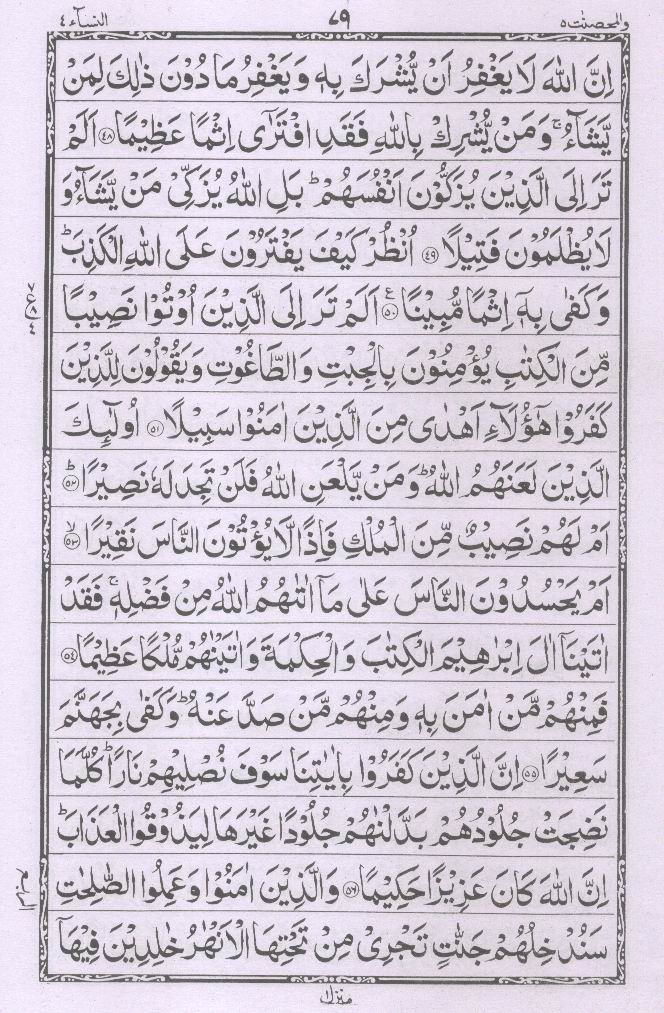 والمحصنت ٥ ٧٩ النسآء ٤
اِنَّ اللّٰهَ لَا يَغْفِرُ اَنْ يُّشْرَكَ بِهٖ وَ يَغْفِرُ مَا دُوْنَ ذٰلِكَ لِمَنْ
يَّشَآءُ ۚ وَ مَنْ يُّشْرِكْ بِاللّٰهِ فَقَدِ افْتَرٰٓى اِثْمًا عَظِيْمًا ﴿٤٨﴾ اَلَمْ
تَرَ اِلَى الَّذِيْنَ يُزَكُّوْنَ اَنْفُسَهُمْ ؕ بَلِ اللّٰهُ يُزَكِّيْ مَنْ يَّشَآءُ وَ
لَا يُظْلَمُوْنَ فَتِيْلًا ﴿٤٩﴾ اُنْظُرْ كَيْفَ يَفْتَرُوْنَ عَلَى اللّٰهِ الْكَذِبَ ؕ
وَ كَفٰى بِهٖۤ اِثْمًا مُّبِيْنًا ﴿٥٠﴾ ع اَلَمْ تَرَ اِلَى الَّذِيْنَ اُوْتُوْا نَصِيْبًا
مِّنَ الْكِتٰبِ يُؤْمِنُوْنَ بِالْجِبْتِ وَ الطَّاغُوْتِ وَ يَقُوْلُوْنَ لِلَّذِيْنَ
كَفَرُوْا هٰٓؤُلَآءِ اَهْدٰى مِنَ الَّذِيْنَ اٰمَنُوْا سَبِيْلًا ﴿٥١﴾ اُولٰٓئِكَ
الَّذِيْنَ لَعَنَهُمُ اللّٰهُ ؕ وَ مَنْ يَّلْعَنِ اللّٰهُ فَلَنْ تَجِدَ لَهٗ نَصِيْرًا ﴿٥٢﴾ ؕ
اَمْ لَهُمْ نَصِيْبٌ مِّنَ الْمُلْكِ فَاِذًا لَّا يُؤْتُوْنَ النَّاسَ نَقِيْرًا ﴿٥٣﴾ ۙ
اَمْ يَحْسُدُوْنَ النَّاسَ عَلٰى مَاۤ اٰتٰىهُمُ اللّٰهُ مِنْ فَضْلِهٖ ۚ فَقَدْ
اٰتَيْنَاۤ اٰلَ اِبْرٰهِيْمَ الْكِتٰبَ وَ الْحِكْمَةَ وَ اٰتَيْنٰهُمْ مُّلْكًا عَظِيْمًا ﴿٥٤﴾
فَمِنْهُمْ مَّنْ اٰمَنَ بِهٖ وَ مِنْهُمْ مَّنْ صَدَّ عَنْهُ ؕ وَ كَفٰى بِجَهَنَّمَ
سَعِيْرًا ﴿٥٥﴾ اِنَّ الَّذِيْنَ كَفَرُوْا بِاٰيٰتِنَا سَوْفَ نُصْلِيْهِمْ نَارًا ؕ كُلَّمَا
نَضِجَتْ جُلُوْدُهُمْ بَدَّلْنٰهُمْ جُلُوْدًا غَيْرَهَا لِيَذُوْقُوا الْعَذَابَ ؕ
اِنَّ اللّٰهَ كَانَ عَزِيْزًا حَكِيْمًا ﴿٥٦﴾ وَ الَّذِيْنَ اٰمَنُوْا وَ عَمِلُوا الصّٰلِحٰتِ
سَنُدْخِلُهُمْ جَنّٰتٍ تَجْرِيْ مِنْ تَحْتِهَا الْاَنْهٰرُ خٰلِدِيْنَ فِيْهَاۤ
منزل ١